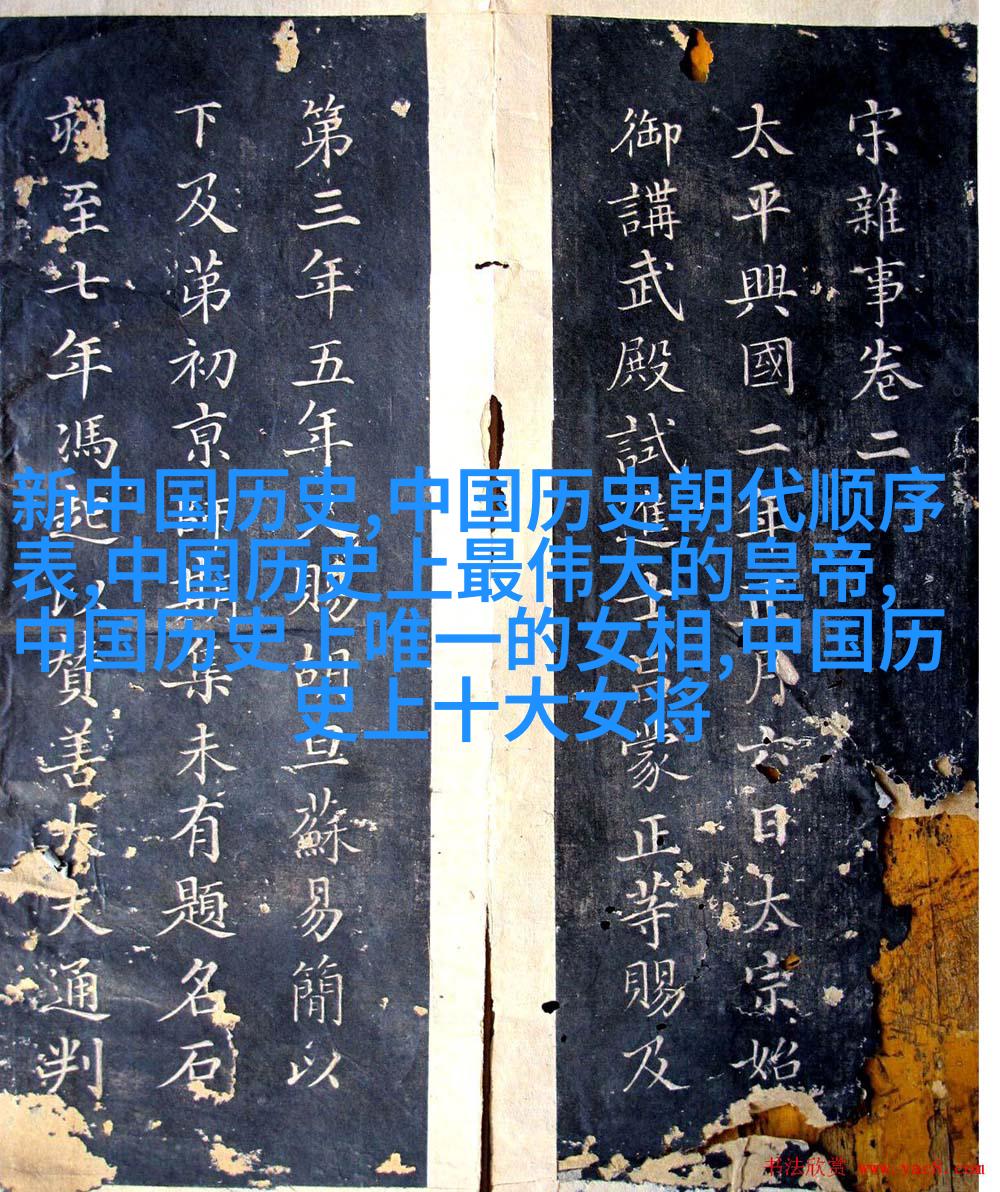 宋雜事卷二
太平興國二年正月六日太宗始
御講武殿試進士呂蒙正等賜及
第三年五年又賜胡旦蘇易簡以
下及第初京師期集未有題名石
刻至七年馮起以贊善大夫通判
新中国历史,中国历史朝代顺序
表,中国历史上最伟大的皇帝,
中国历史上唯一的女相,中国历
史上十大女将
书法欣赏 www.yac8.com